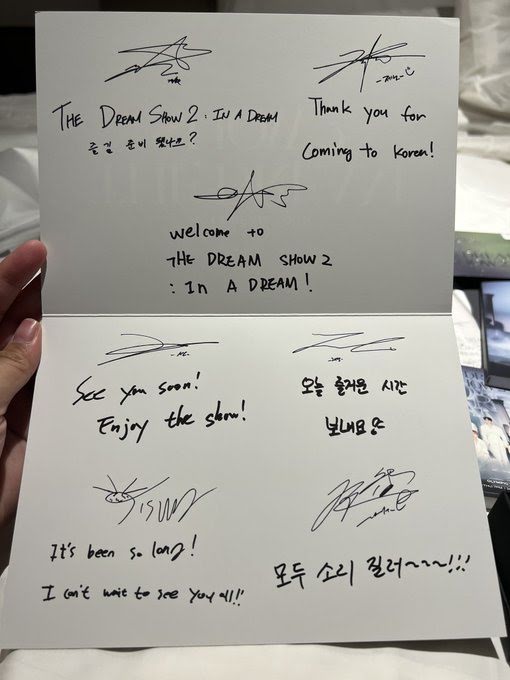 THE DREAM SHOW 2 : IN A DREAM
즐길 준비 됐나요?
-제노-
Thank you for
Coming to Korea!
Welcome to
THE DREAM SHOW 2
: In A DREAM!
See you soon!
Enjoy the show!
오늘 즐거운 시간
보내요
JISUNG
It's been so long!
I can't wait to see you all!!
모두 소리 질러~~~!!!